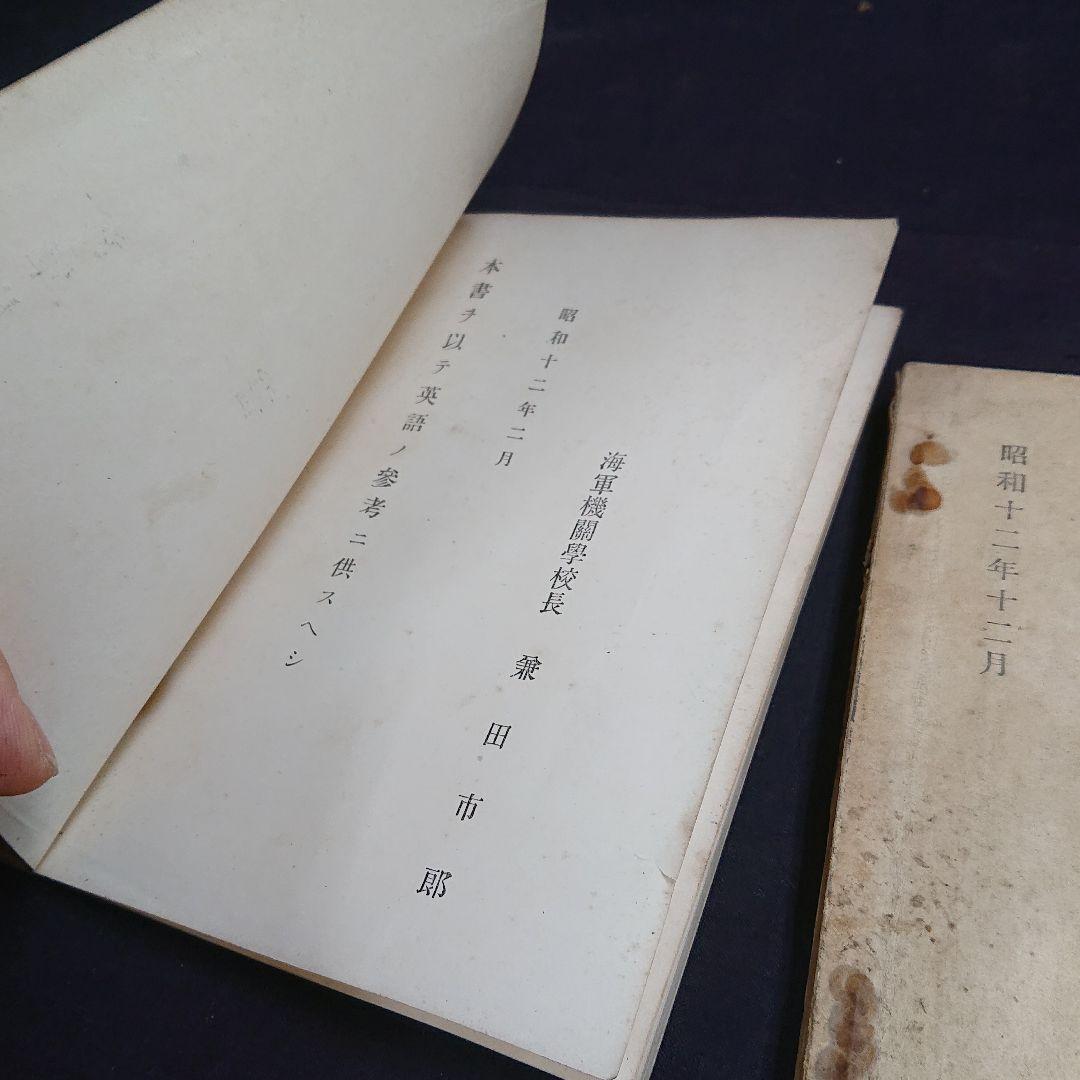 本書ヲ以テ英語ノ參考ニ供スヘシ
昭和十二年二月
海軍機關學校長 兼田市郎
昭和十二年十二月